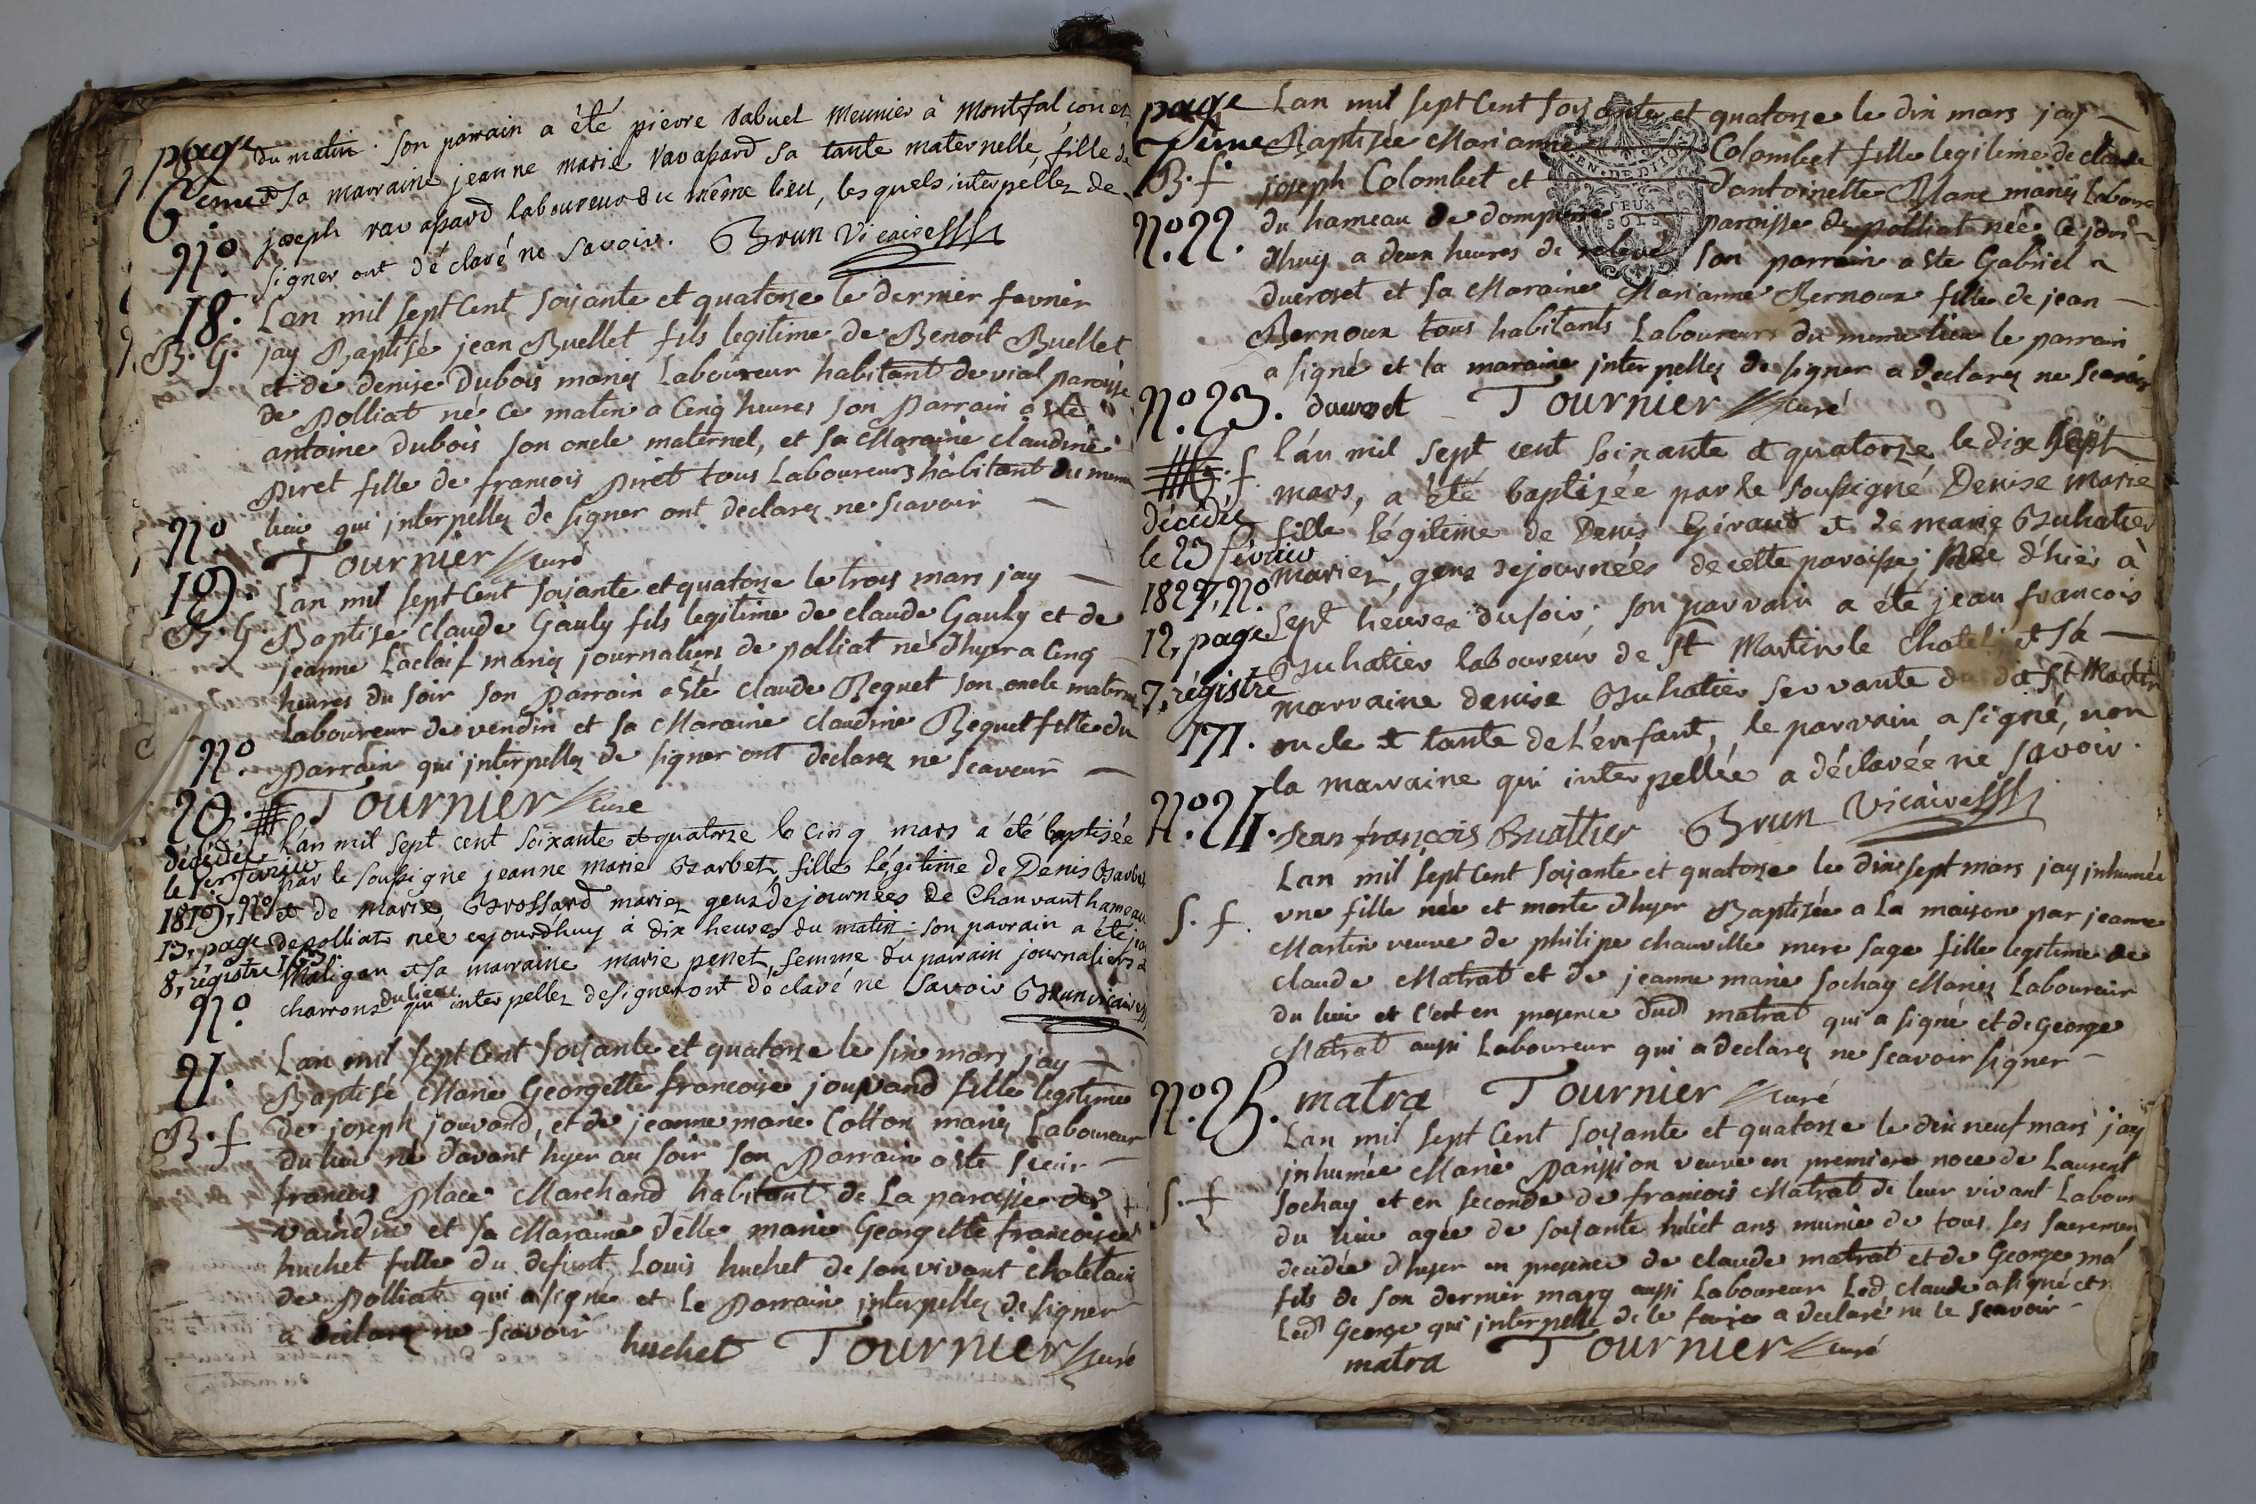 page
6eme
du matin. son parrain a été pierre vabuel meunier à montfalcon et
sa marraine jeanne marie ravassard sa tante maternelle, fille de
joseph ravassard laboureur du même lieu, lesquels interpellez de
signer ont déclaré ne savoir. Brun vicaire
No 18.
B. G.
Lan mil sept Cent soisante et quatorse le dernier fevrier
jay Baptisé jean Buellet fils legitime de Benoit Buellet
et de denise Dubois mariez Laboureur habitant de vial paroisse
de Polliat né ce matin a Cinq heures son Parrain a esté
antoine Dubois son oncle maternel, et sa Maraine claudine
Piret fille de francois Piret tous Laboureurs habitant du meme
lieu qui interpellez de signer ont declarez ne scavoir
Tournier curé
No 19.
B. G.
Lan mil sept Cent soisante et quatorse le trois mars jay
Baptisé claude Gauly fils legitime de claude Gauly et de
jeanne Laclaif mariez journaliers de polliat né d'hyer a Cinq
heures du soir son Parrain a esté claude Requet son oncle maternel
Laboureur de vendin et sa Maraine claudine Requet fille du
Parrain qui interpellez de signer ont declarez ne scavoir
Tournier curé
No 20.
décédée
le 1er février
1819, No
13, page
8, régistre 163
l'an mil sept cent soixante et quatorze le cinq mars a été baptisée
par le soussigné jeanne marie Barbet, fille légitime de Denis Barbet
et de marie Brossard mariez gens de journées de Chanvant hameau
de polliat née cejourdhuy à dix heures du matin. son parrain a été
maligan et sa marraine marie perret femme du parrain journaliers à
charrons du lieu qui interpellez de signer ont déclaré ne savoir Brun vicaire
No 21.
B. f
Lan mil sept Cent soisante et quatorse le six mars jay
Baptisé Marie Georgette francoise jouvand fille legitime
de joseph jouvand, et de jeanne marie Cotton mariez Laboureur
du lieu né d'avant hyer au soir son Parrain a esté sieur
francois Place Marchand habitant de La paroisse de
vaindin et sa Maraine d'elle marie Georgette francoise
huchet fille du defunt Louis huchet de son vivant chatelain
de Polliat qui a signé et Le Parrain interpellez de signer
a declarez ne scavoir huchet Tournier curé
page
7eme
B. f.
No. 22.
Lan mil sept Cent soisante et quatorse le dix mars jay
Baptisée Marianne Colombet fille legitime de claude
joseph Colombet et d'antoinette Blanc mariez Laboureur
du hameau de dompierre paroisse de polliat née ce jour
dhuy a deux heures de relevé son parrain a ste Gabriel
ducroset et sa Maraine Marianne Bernoux fille de jean
Bernoux tous habitants Laboureurs du meme lieu le parrain
a signé et la maraine interpellez de signer a declarez ne scavoir
ducroset Tournier curé
No. 23.
B. f
décédée
le 23 février
1827, No.
12, page
7, régistre
171.
l'an mil sept cent soixante et quatorze le dix sept
mars, a été baptizée par le soussigné Denise Marie
fille légitime de Denis Giraud et de marie Buhatier
mariez, gens de journées de cette paroisse. née d'hier à
sept heures du soir; son parrain a été jean francois
Buhatier laboureur de St Martin le Chatel et sa
marraine denise Buhatier servante du dit St Martin
oncle et tante de l'enfant, le parrain a signé, non
la marraine qui interpellée a déclarée ne savoir.
Jean françois Buattier Brun vicaire
No. 24.
S. f.
Lan mil sept Cent soisante et quatorse le dixsept mars jay inhumée
une fille née et morte d'hyer Baptisée a La maison par jeanne
Martin veuve de philipe chanville mere sage fille legitime de
claude Matrat et de jeanne marie sochay Mariez Laboureur
du lieu et c'est en presence dud matrat qui a signé et de George
Matrat aussi Laboureur qui a declarez ne scavoir signer
matra Tournier curé
No. 25.
S. f
Lan mil sept Cent soisante et quatorse le dix neuf mars jay
inhumée Marie Parission veuve en premiere noce de Laurent
sochay et en seconde de francois Matrat de leur vivant Labour
du lieu agée de soisante huict ans munie de tous ses sacremen
decidée d'hyer en presence de claude matrat et de George ma
fils de son dernier mary aussi Laboureur Led claude a signé et n
Led George qui interpellé de le faire a declaré ne le scavoir
matra Tournier curé